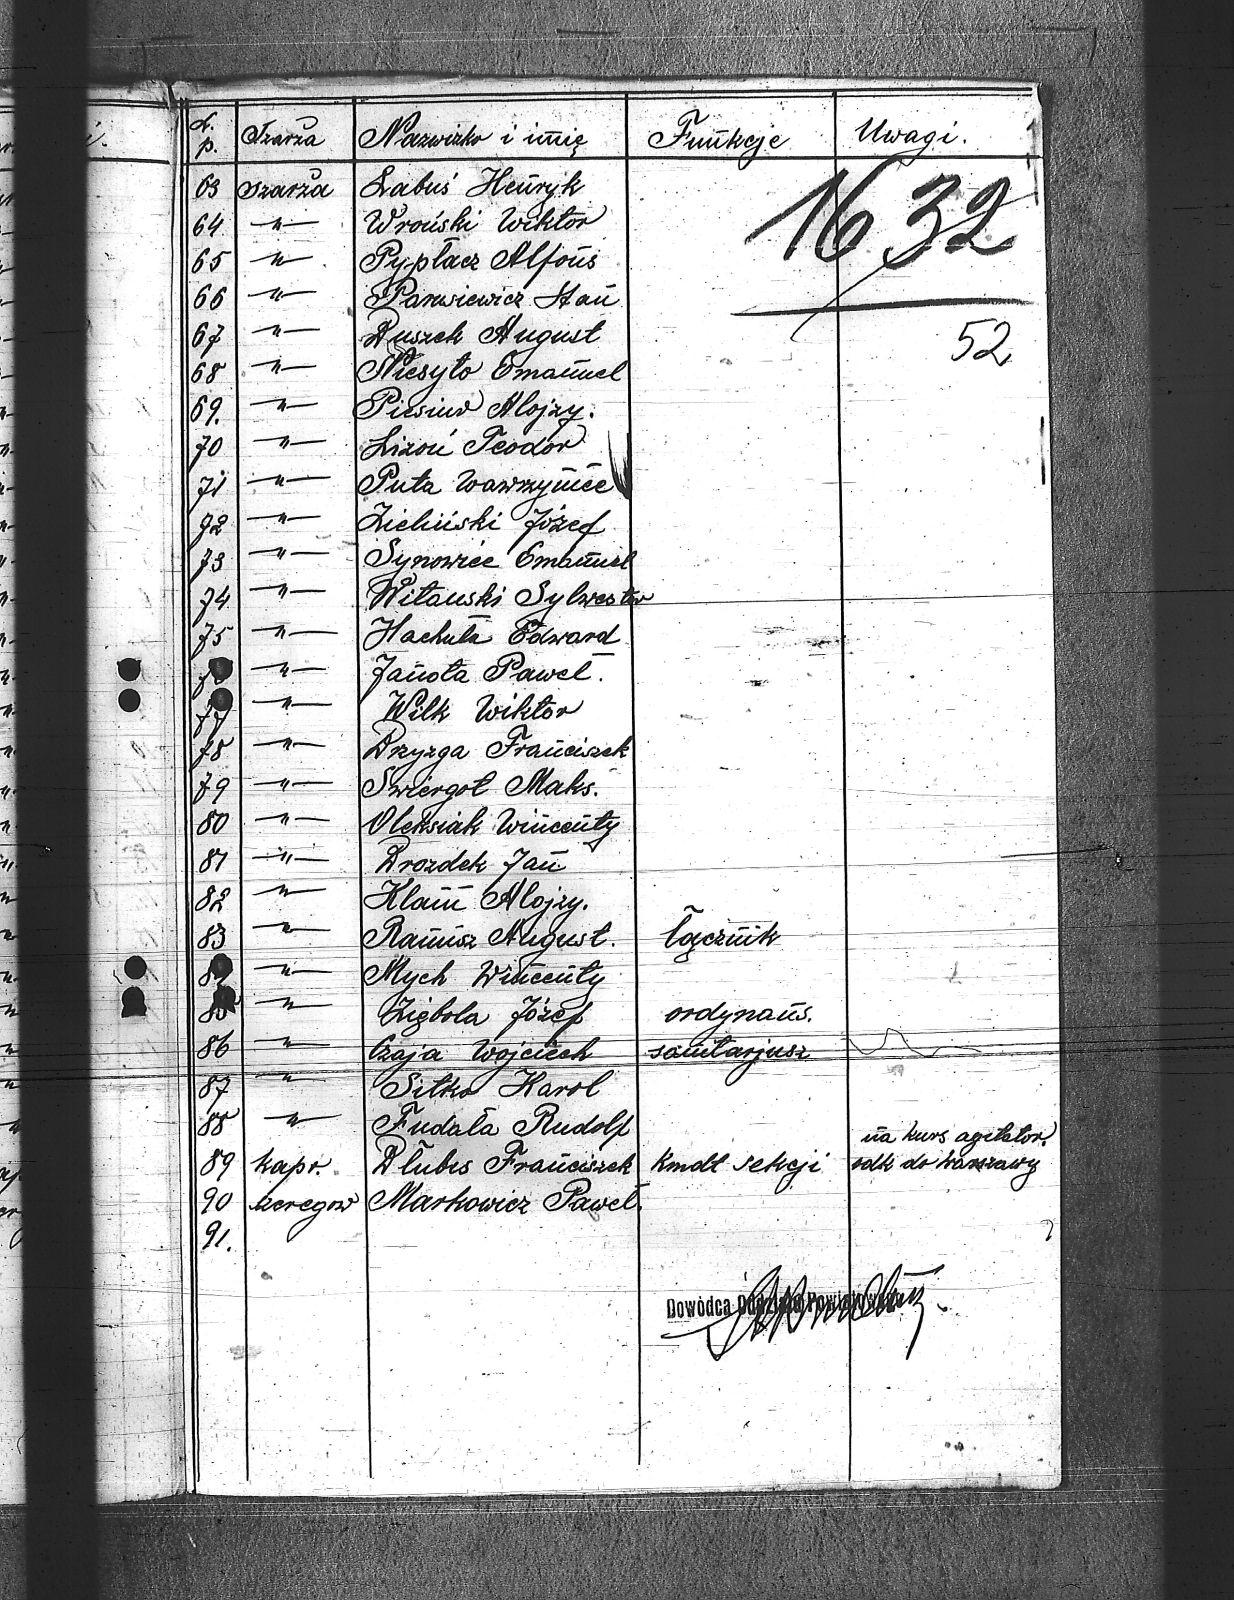 L.p. Szarża Nazwizko i imię Funkcje Uwagi.
1632
52
63 szarża Labuś Henryk
64 -"- Wroński Wiktor
65 -"- Pypłacz Alfons
66 -"- Parwiewicz Stan
67 -"- Duszek August
68 -"- Niesyto Emanuel
69. -"- Alojzy.
70 -"- Lizoń Teodor
71 -"- Puta Wawrzyniec
72 -"- Zieliński Józef
73 -"- Synowiec Emanuel
74 -"- Witański Sylwester
75 -"- Hachuła Edward
-"- Janota Paweł.
77 -"- Wilk Wiktor
78 -"- Dzyzga Franciszek
79 -"- Świergot Maks.
80 -"- Oleksiak Wincenty
81 -"- Drozdek Jan
82 -"- Klam Alojzy.
83 -"- Ranisz August. łącznik
84 -"- Mych Wincenty
85 -"- Zigbola Józef ordynans.
86 -"- Czaja Wojciech sanitarjusz
87 -"- Sitko Karol
88 -"- Fudała Rudolf
na kurs agitator.
89 kapr. Dłubis Franciszek kmdt sekcji odk do Warszawy
90 szeregow Markowicz Paweł.
91.
Dowódca